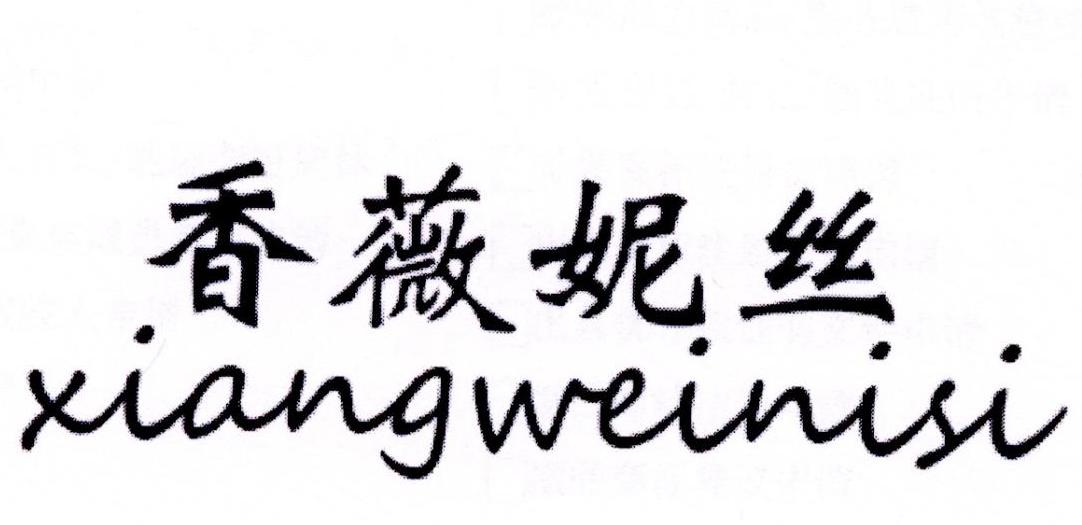 香薇妮丝
xiangweinisi